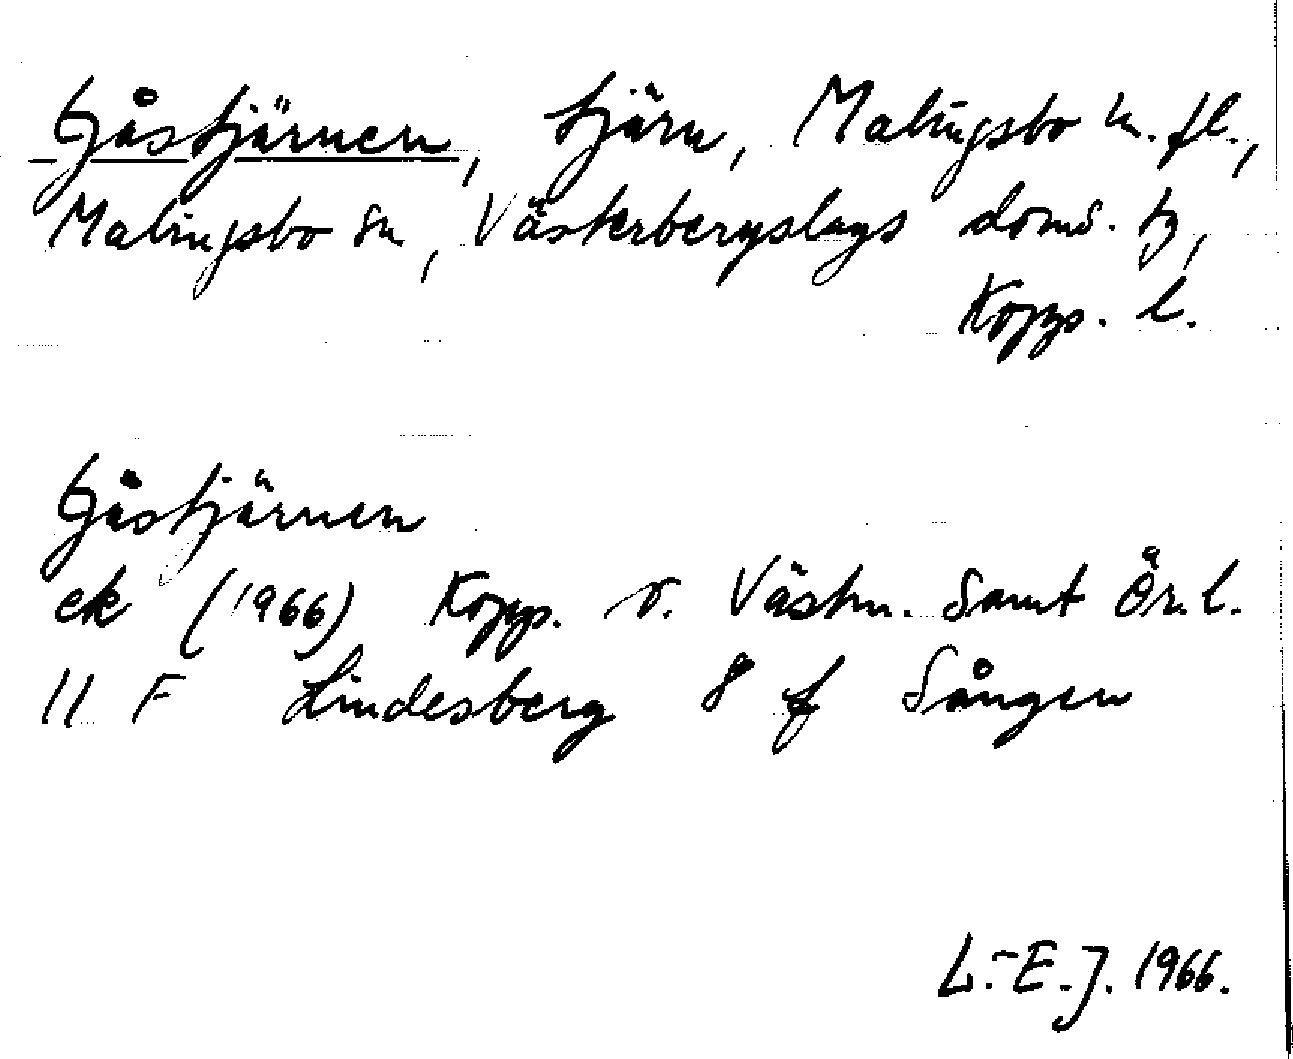 Gåstjärnen, tjärn, Malingsbo m. fl.,
Malingsbo sn, Västerbergslags doms. tg,
Kopp. l.
Gåstjärnen
ek (1966) Kopp. o. Västm. samt Ör. l.
11 F Lindesberg 8 f Sången
L.-E. J. 1966.